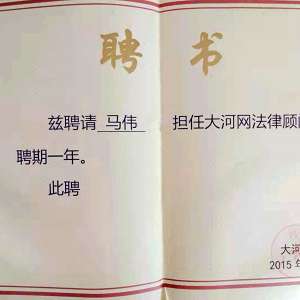 聘书
兹聘请 马伟 担任大河网法律顾
聘期一年。
此聘
大河
2015年